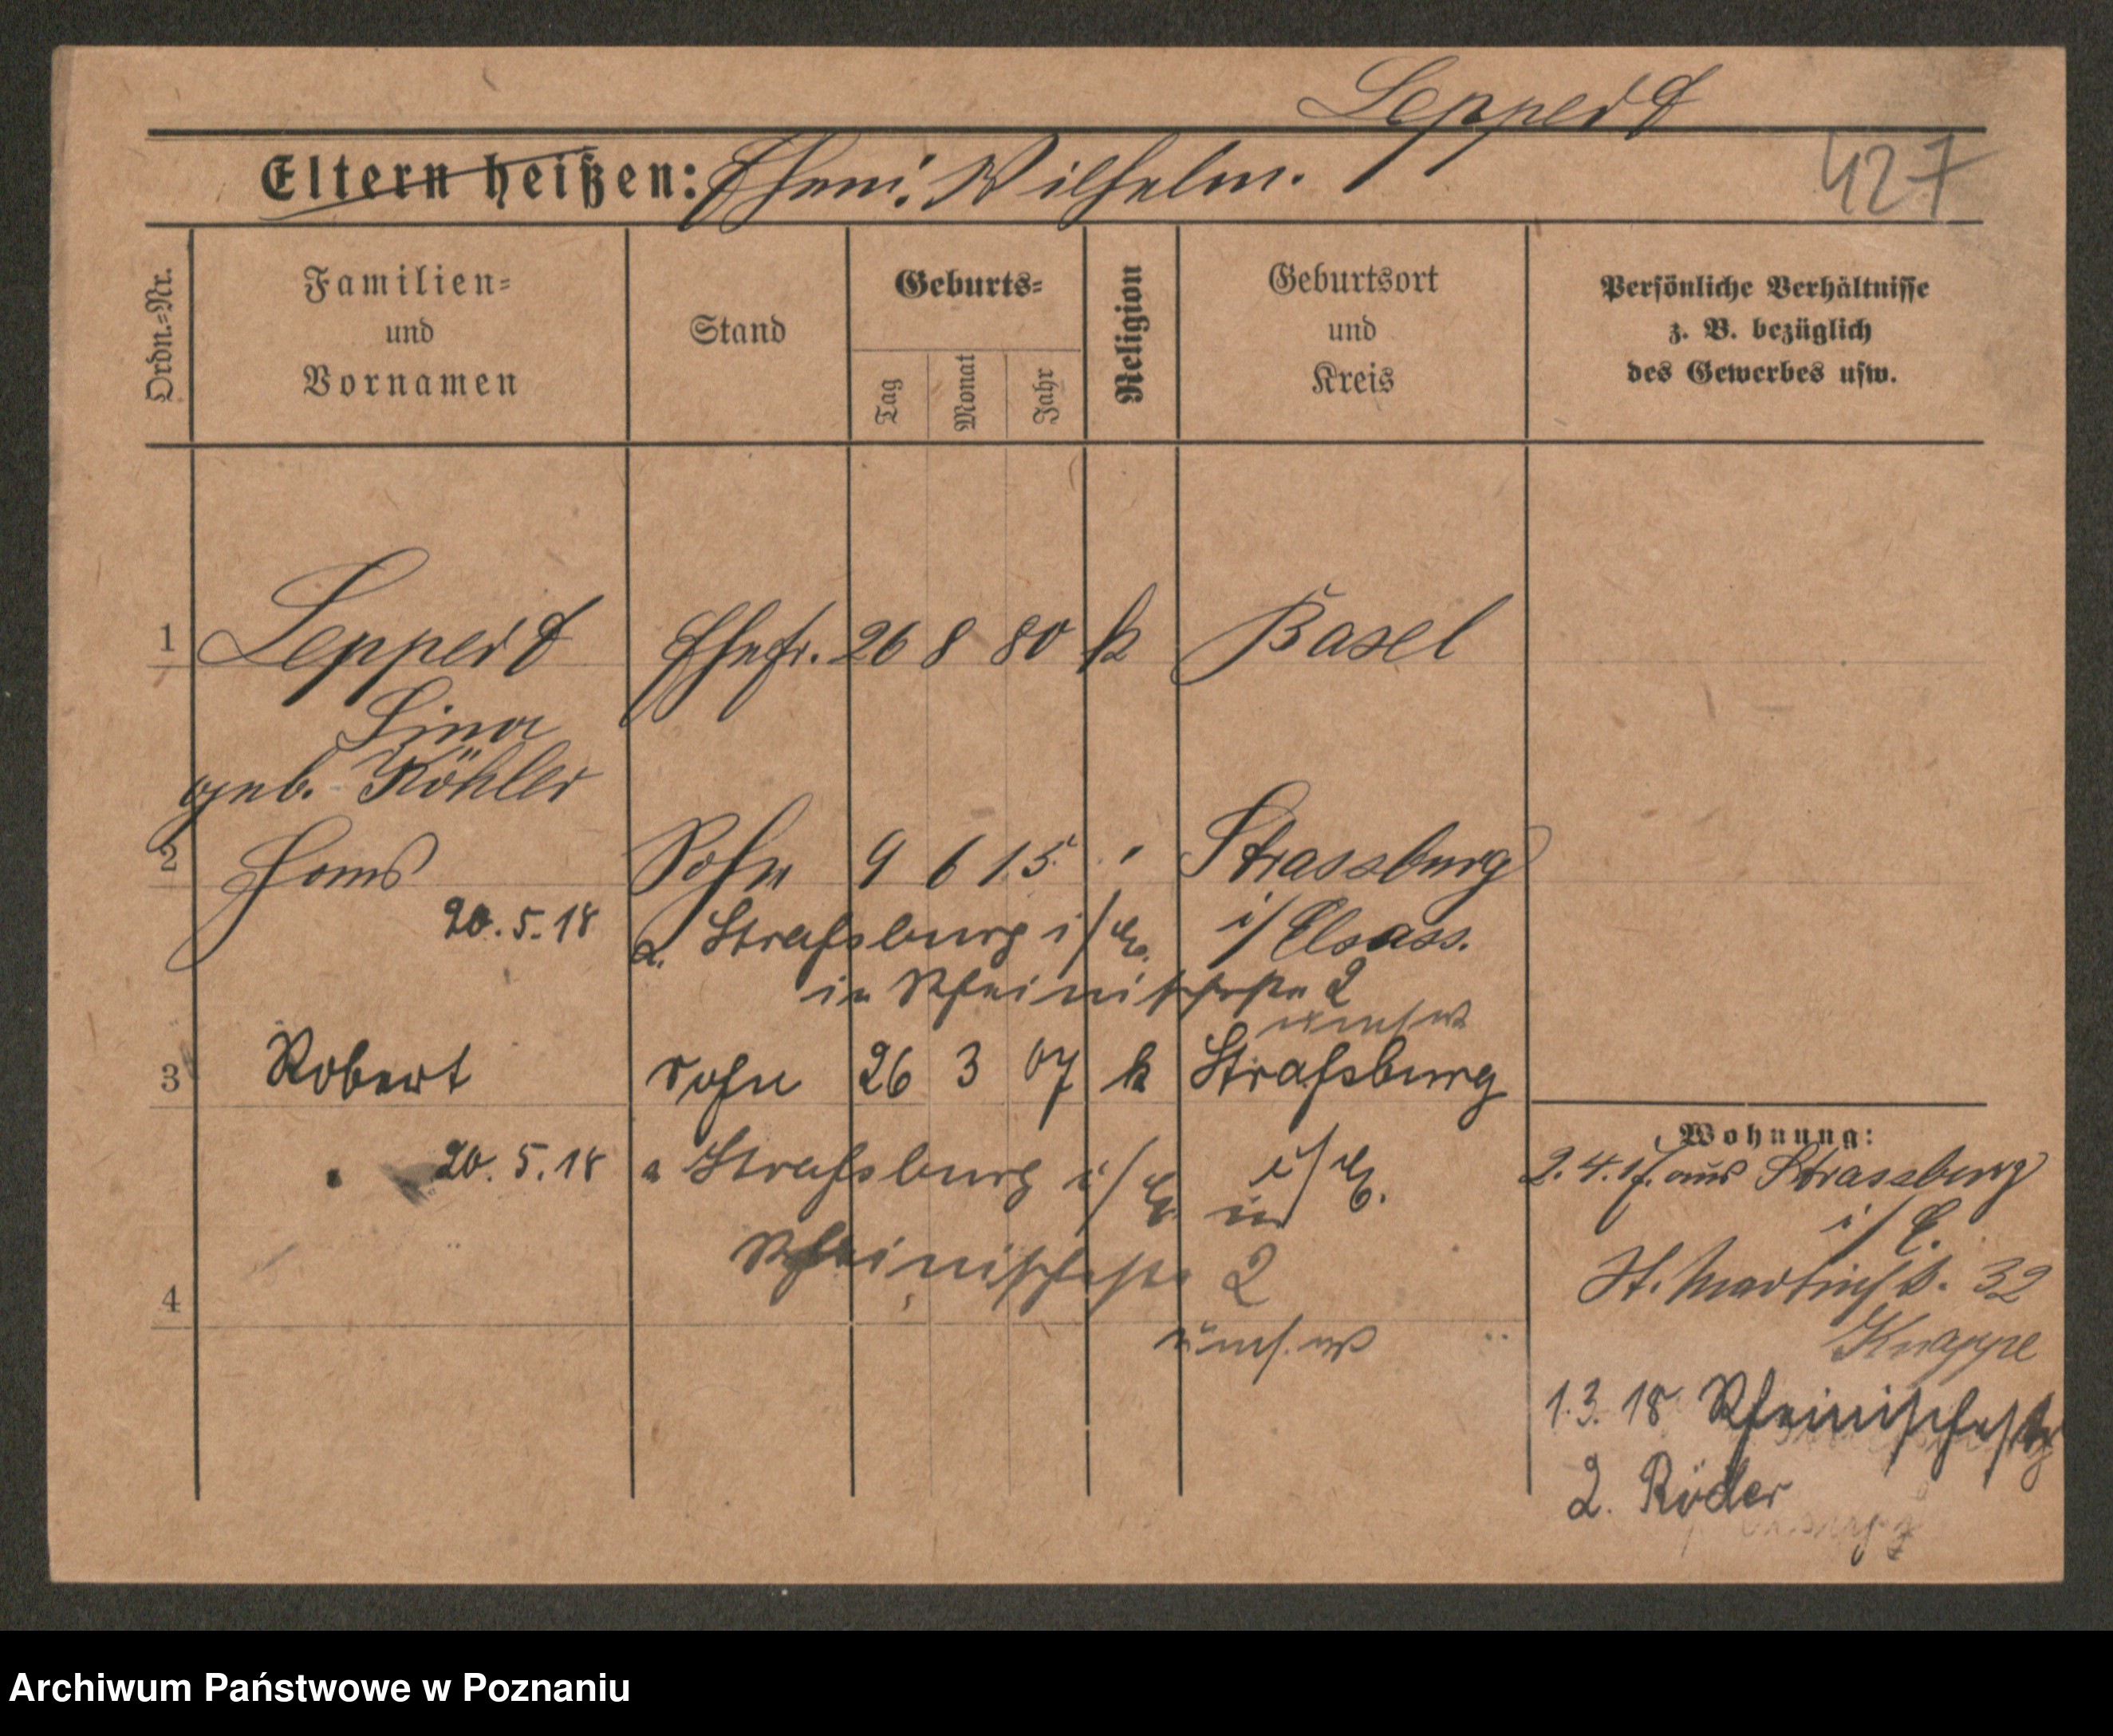 Lepperd
Eltern heißen: Ehem: Wilhelm.
427
Ordn.=Nr.
Familien=
und
Vornamen
Stand
Geburts=
Tag
Monat
Jahr
Religion
Geburtsort
und
Kreis
Persönliche Verhältnisse
z. B. bezüglich
des Gewerbes usw.
1 Lepperd Ehefr. 26 8 80 k Basel
Lina
geb. Köhler
2 Hans Sohn 9 6 15 " Strassburg
20.5.18 a. Straßburg i/E. i/Elsass.
in Rheinischestr 2
3 Robert Sohn 26 3 07 k Straßburg
i/E.
20.5.18 a Straßburg i/E in
Rheinischestr 2
4
Wohnung:
2.4.17. aus Strassburg
i/E.
St. Martinst. 32
Knappe
1.3.18 Rheinischestr
2. Röder
Archiwum Państwowe w Poznaniu